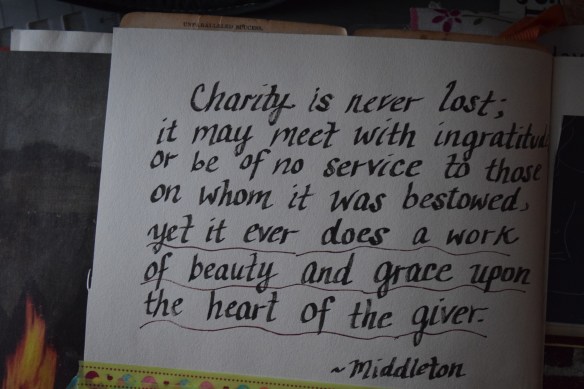 Charity is never lost;
it may meet with ingratitud
or be of no service to those
on whom it was bestowed,
yet it ever does a work
of beauty and grace upon
the heart of the giver.
~Middleton